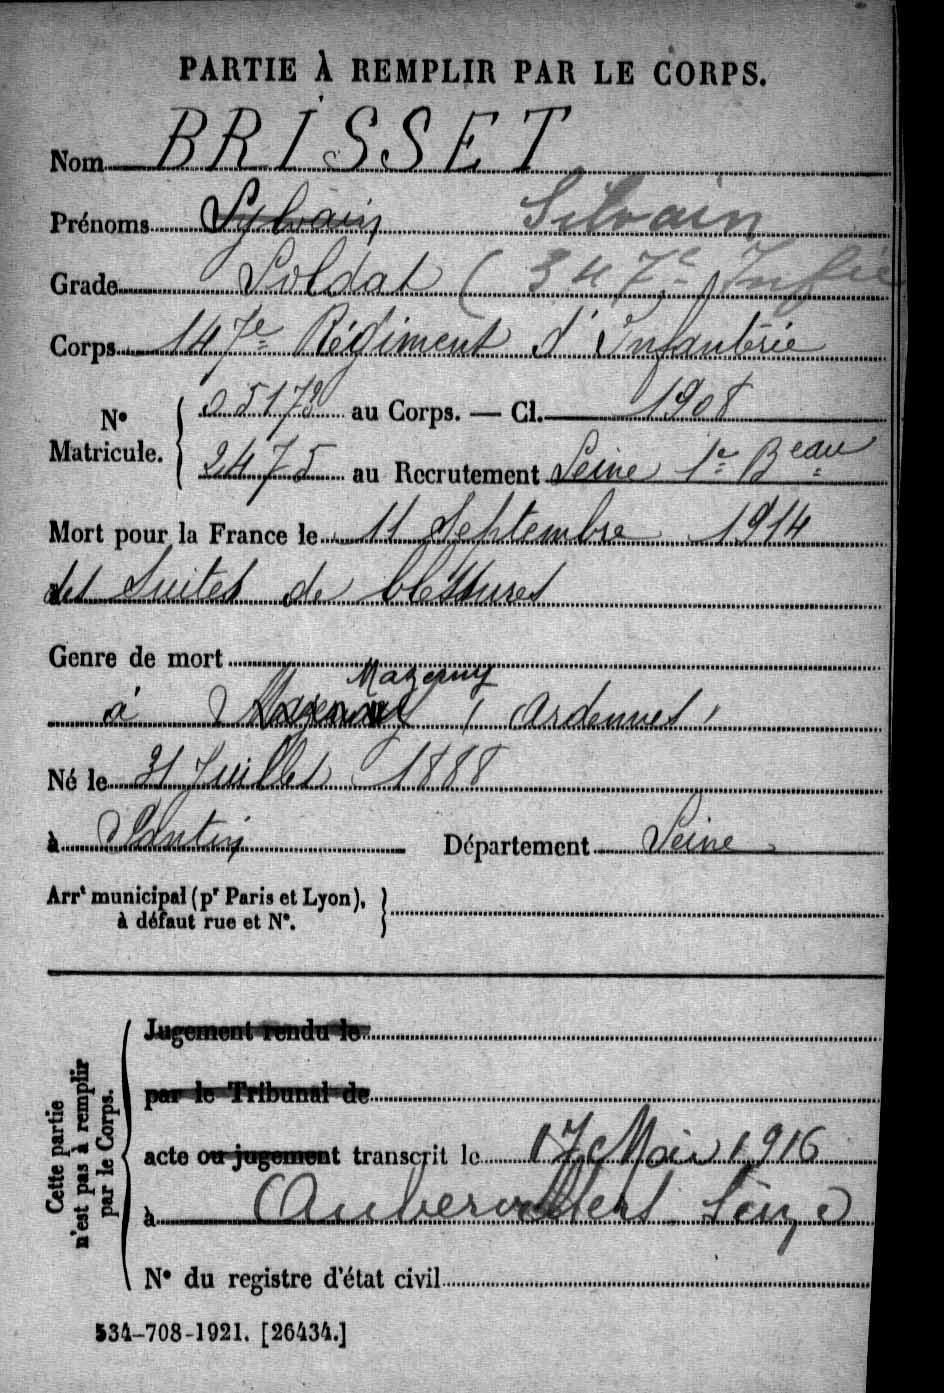 PARTIE À REMPLIR PAR LE CORPS.
Nom BRISSET
Prénoms Sylvain Silvain
Grade Soldat (347e Infie
Corps 147e Régiment d'Infanterie
No Matricule. 05173 au Corps. — Cl. 1908
2475 au Recrutement Seine 1er Beau
Mort pour la France le 11 Septembre 1914
des suites de blessures
Genre de mort
Mazerny
à (Ardennes)
Né le 31 Juillet 1888
à Pantin Département Seine
Arrt municipal (pr Paris et Lyon), à défaut rue et No.
Cette partie n'est pas à remplir par le Corps.
Jugement rendu le
par le Tribunal de
acte ou jugement transcrit le 17 Mai 1916
à Aubervilliers Seine
No du registre d'état civil
534-708-1921. [26434.]